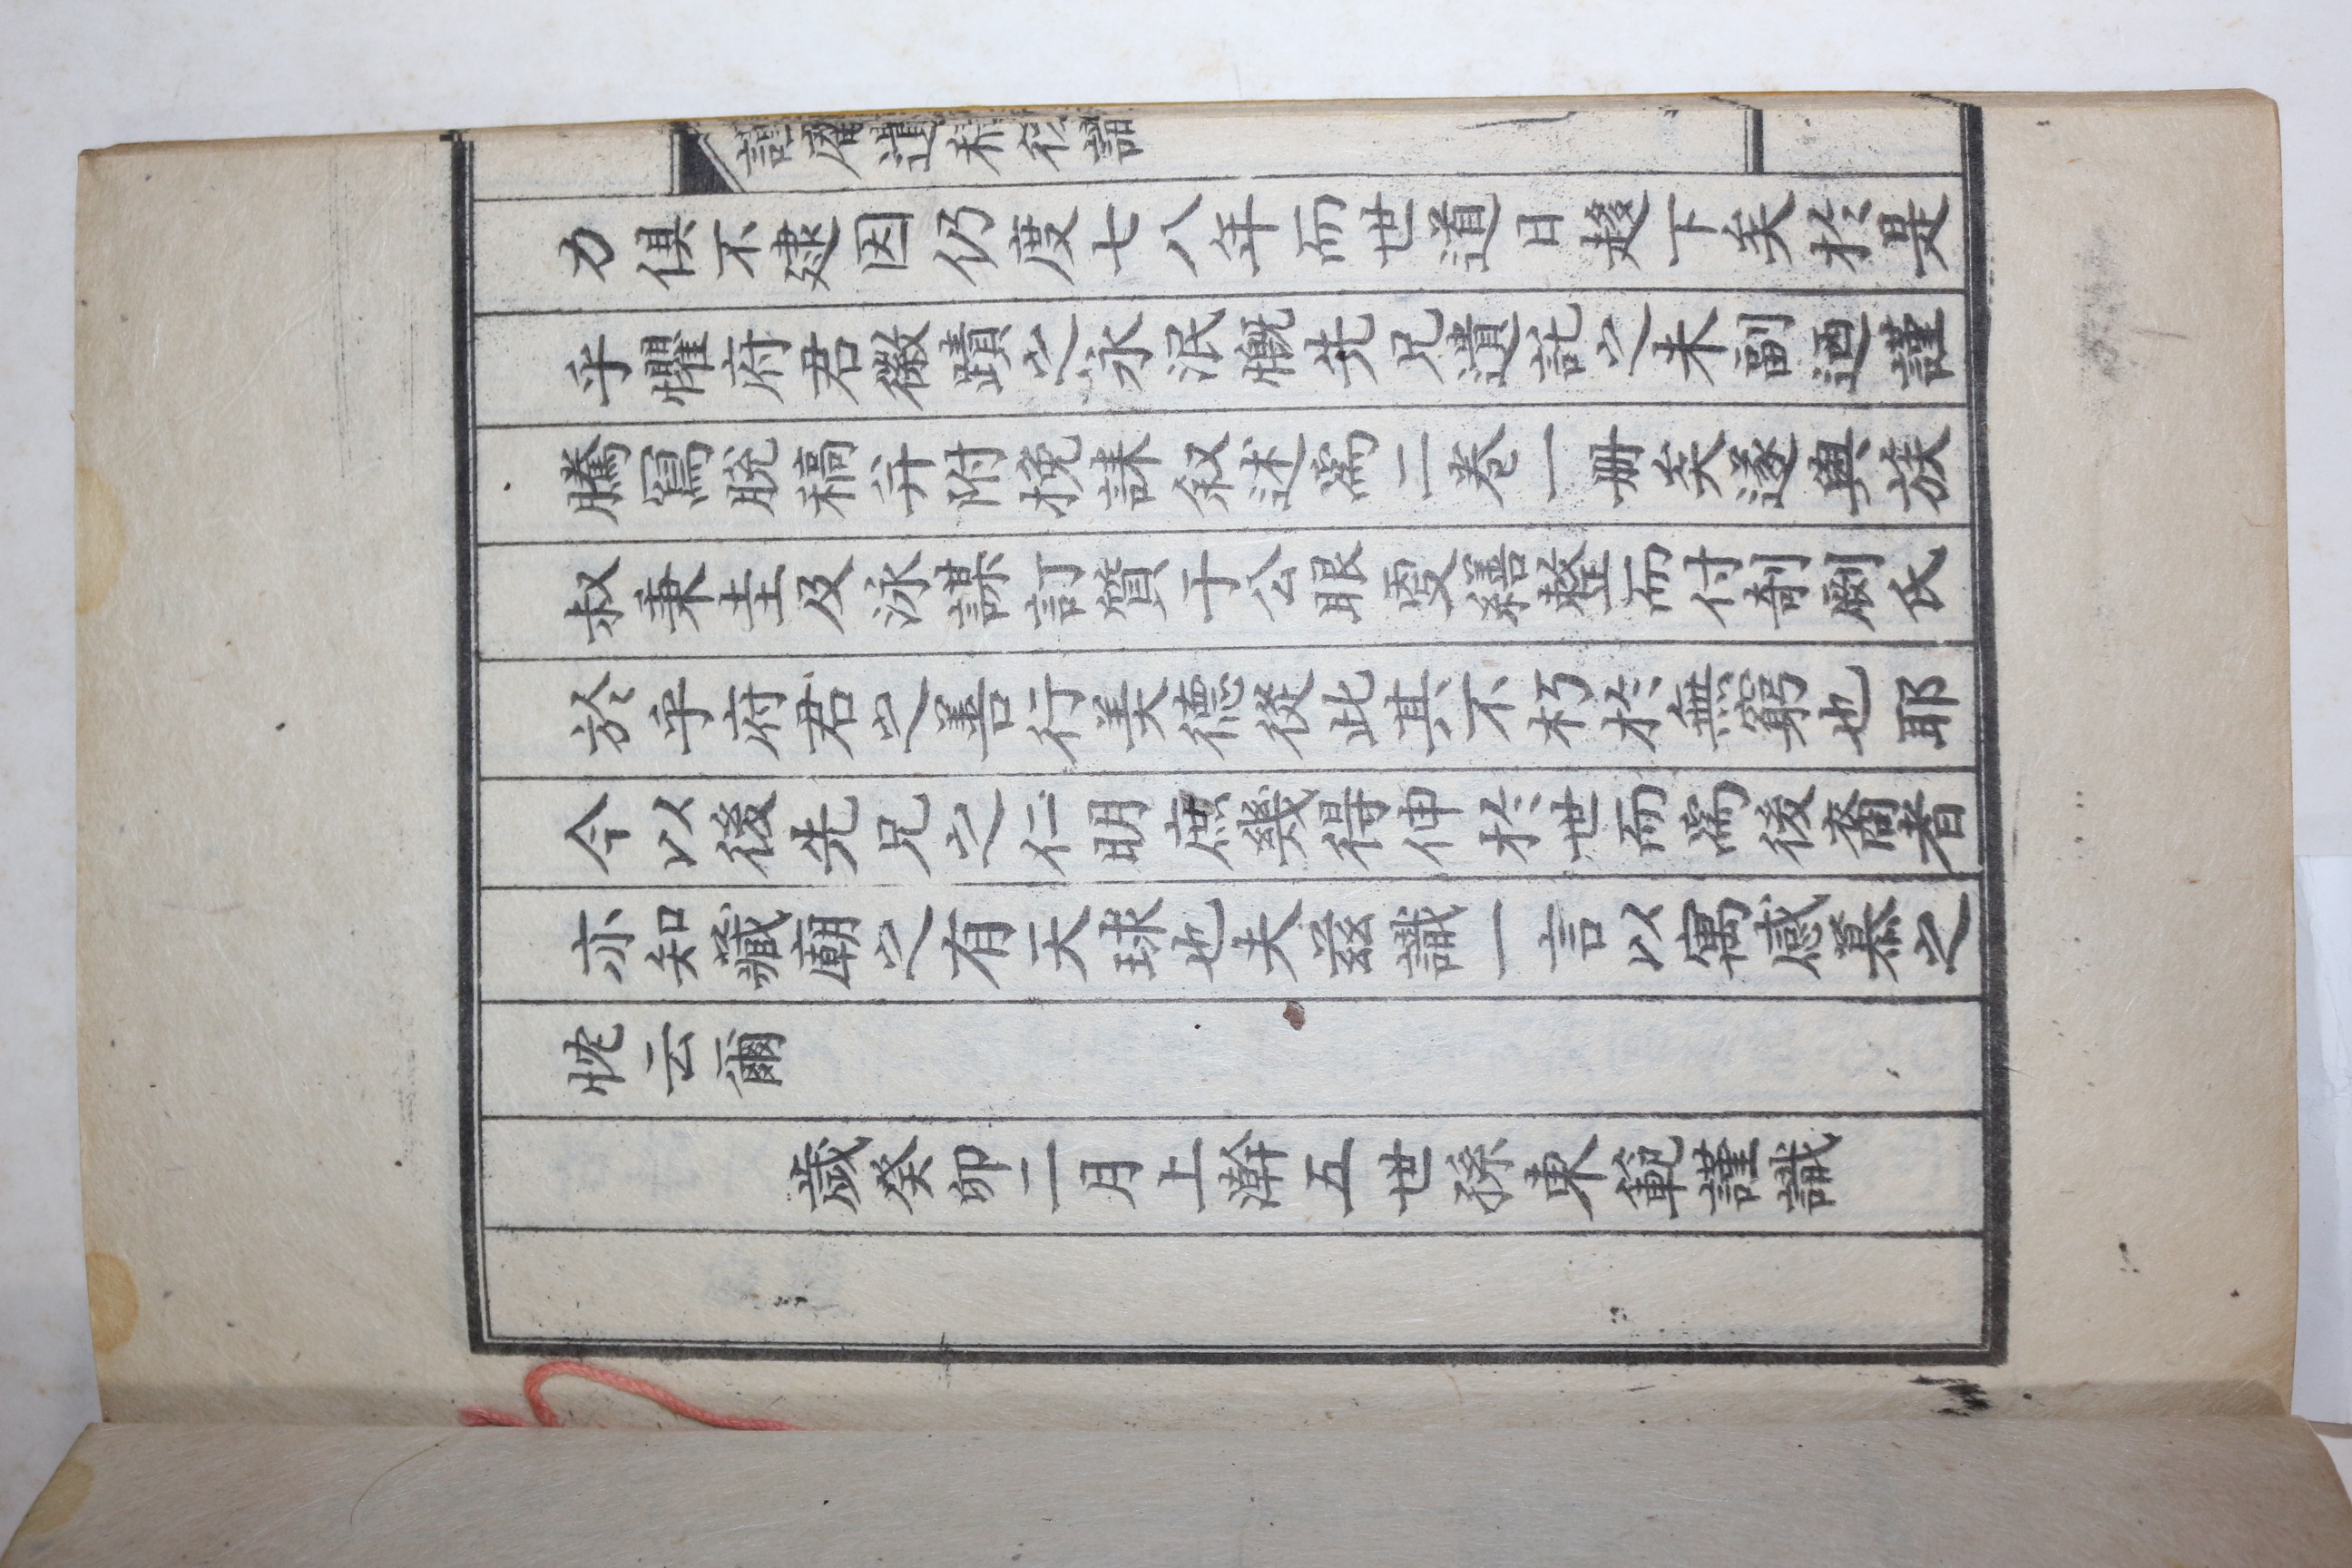 謹庵遺稿後識
力俱不逮因仍度七八年而世道日趍下矣於是
乎懼府君徽蹟之永泯慨先兄遺託之未副迺謹
騰寫脫稿幷附挽誄叙述爲二卷一册矣遂與族
叔秉圭及泳謀訂質于公眼雯繕整而付剞劂氏
於乎府君之善行美德從此其不朽於無窮也耶
今以後先兄之仁明庶幾得伸於世而爲後裔者
亦知藏廟之有天球也夫玆識一言以寓感慕之
忱云爾
歲癸卯二月上澣五世孫東範謹識